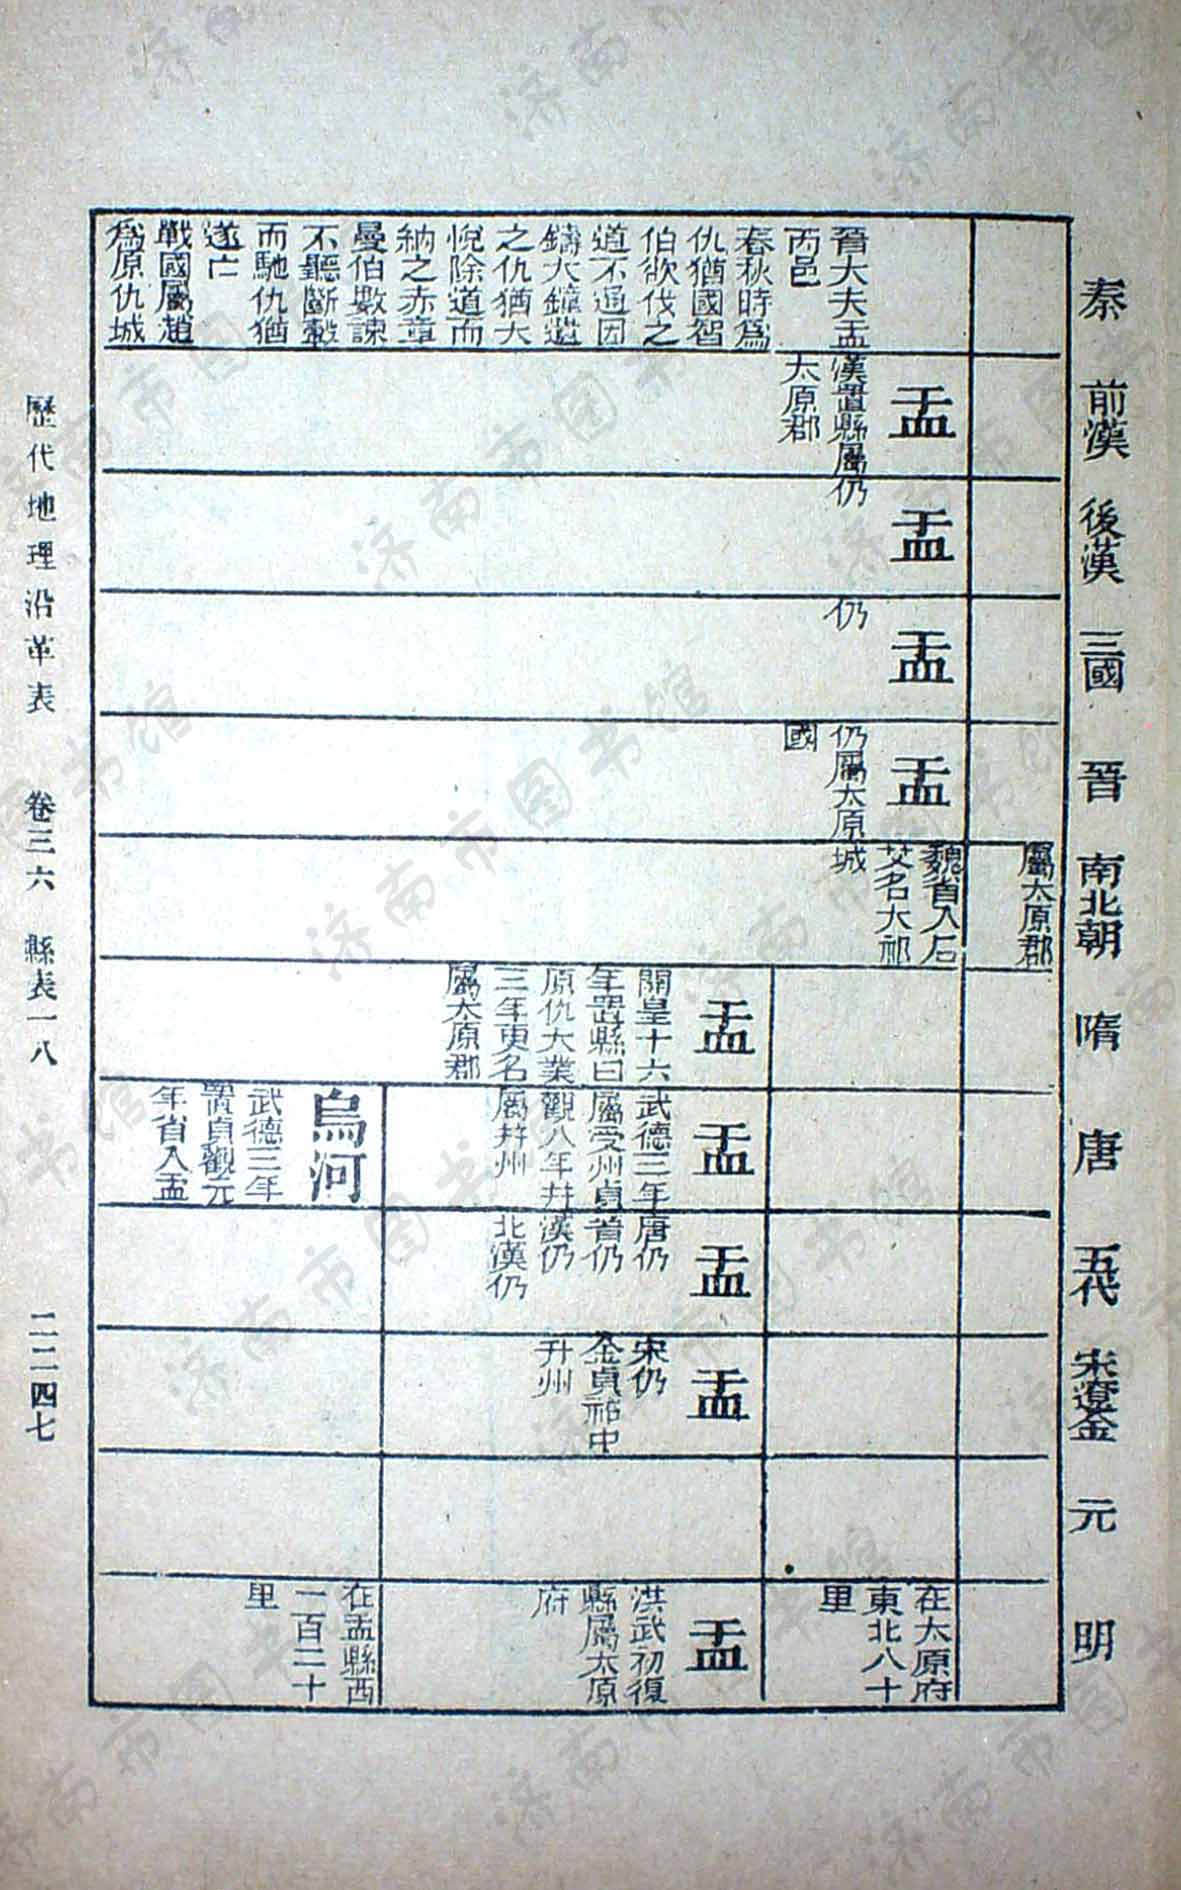 秦
前漢
後漢
三國
晉
南北朝
隋
唐
五代
宋遼金
元
明
屬太原郡
晉大夫盂
丙邑
春秋時爲
仇猶國智
伯欲伐之
道不通因
鑄大鐘遺
之仇猶大
悅除道而
納之赤章
曼伯數諫
不聽斷轂
而馳仇猶
遂亡
戰國屬趙
爲原仇城
盂
漢置縣屬
太原郡
盂
仍
盂
仍
盂
仍屬太原
國
魏省入石
艾名大祁
城
盂
開皇十六
年置縣曰
原仇大業
三年更名
屬太原郡
盂
武德三年
屬受州貞
觀八年幷
屬幷州
烏河
武德三年
置貞觀元
年省入盂
盂
唐仍
晉仍
漢仍
北漢仍
盂
宋仍
金貞祐中
升州
在太原府
東北八十
里
盂
洪武初復
縣屬太原
府
在盂縣西
一百二十
里
歷代地理沿革表 卷三六 縣表一八 二二四七
济南市图书馆